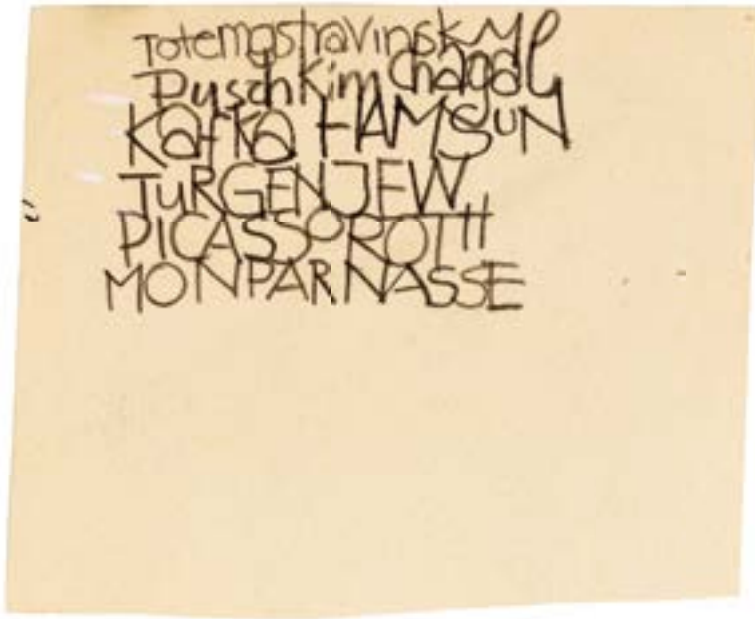 Totemgstravinsky
Puschkim Chagall
Kafka HAMSuN
TuRGENJEW
PICASSO ROTH
MONPARNASSE